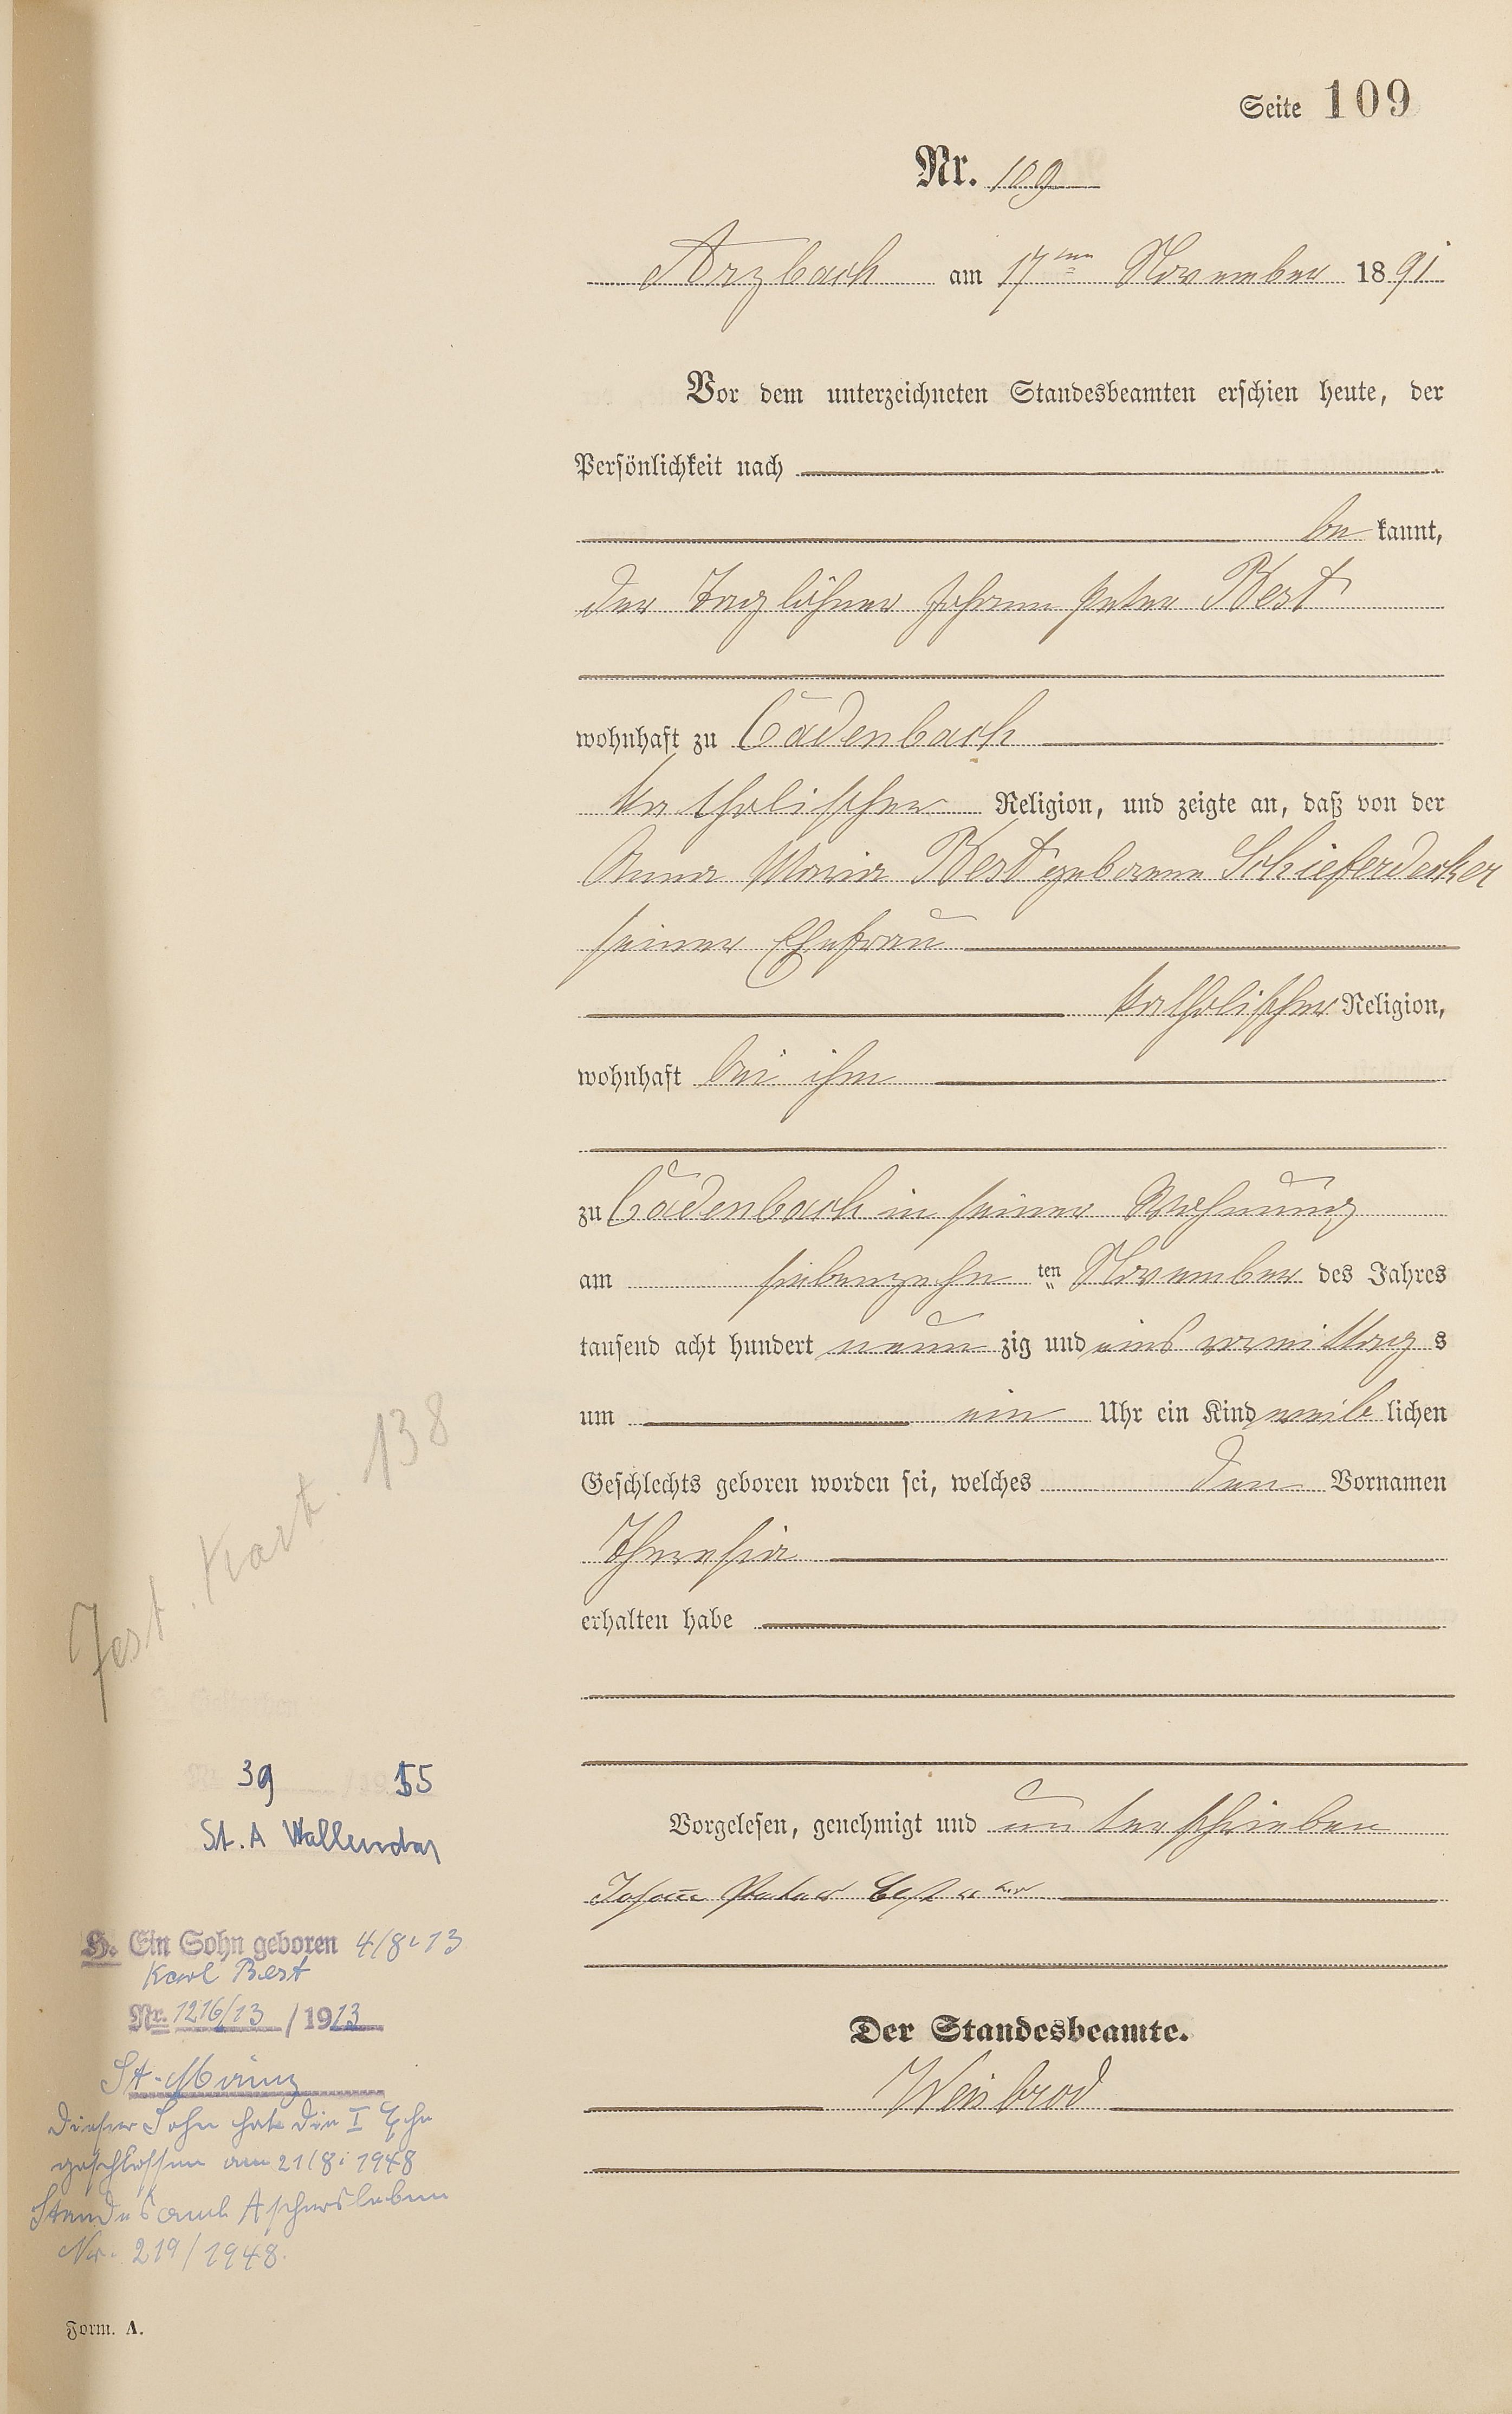 Seite 109
Nr. 109
Arzbach am 17ten November 1891
Vor dem unterzeichneten Standesbeamten erschien heute, der
Persönlichkeit nach
be kannt,
der Taglöhner Johann Peter Best
wohnhaft zu Cadenbach
katholischer Religion, und zeigte an, daß von der
Anna Maria Best geborene Schieferdecker
seiner Ehefrau
katholischer Religion,
wohnhaft bei ihm
zu Cadenbach in seiner Wohnung
am siebenzehn ten November des Jahres
tausend acht hundert neun zig und eins vormittag s
um ein Uhr ein Kind weib lichen
Geschlechts geboren worden sei, welches den Vornamen
Theresia
erhalten habe
Vorgelesen, genehmigt und unterschrieben
Johann Peter Best
Der Standesbeamte.
Weisbrod
Kart. 138
39 55
St. A Vallendar
H. Ein Sohn geboren 4/8. 13
Karl Best
Nr. 1216/13 / 1913
St. Mainz
Dieser Sohn hat die I Ehe
geschlossen am 21/8. 1948
Standesamt Aschersleben
Nr. 219/1948.
Form. A.